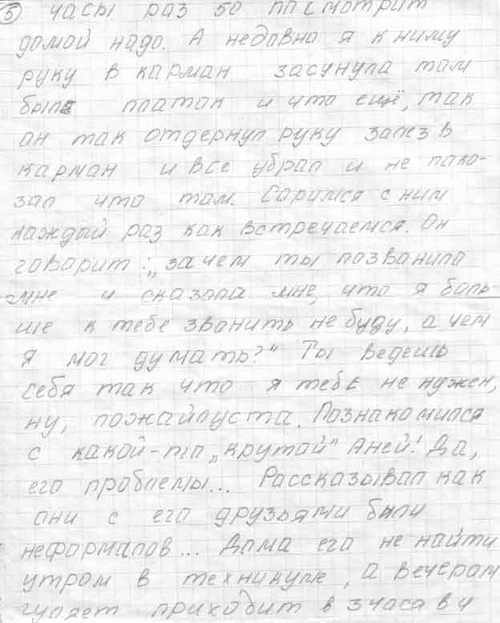 5 часы раз 50 посмотрит
домой надо. А недавно я к ниму
руку в карман засунула там
были платок и что ещё, так
он так отдернул руку залез в
карман и все убрал и не пака-
зал что там. Соримся с ним
каждый раз как встречаемся. Он
говорит: „зачем ты пазванила
мне и сказала мне, что я боль-
ше к тебе званить не буду, а чем
я мог думать?" Ты ведешь
себя так что я тебе не нужен,
ну, пожайлуста. Познакомился
с какой-то „крутой" Аней! Да,
его проблемы... Рассказывал как
они с его друзьями били
неформалов... Дома его не найти
утром в техникуме, а вечером
гуляет приходит в 3 часа в 4